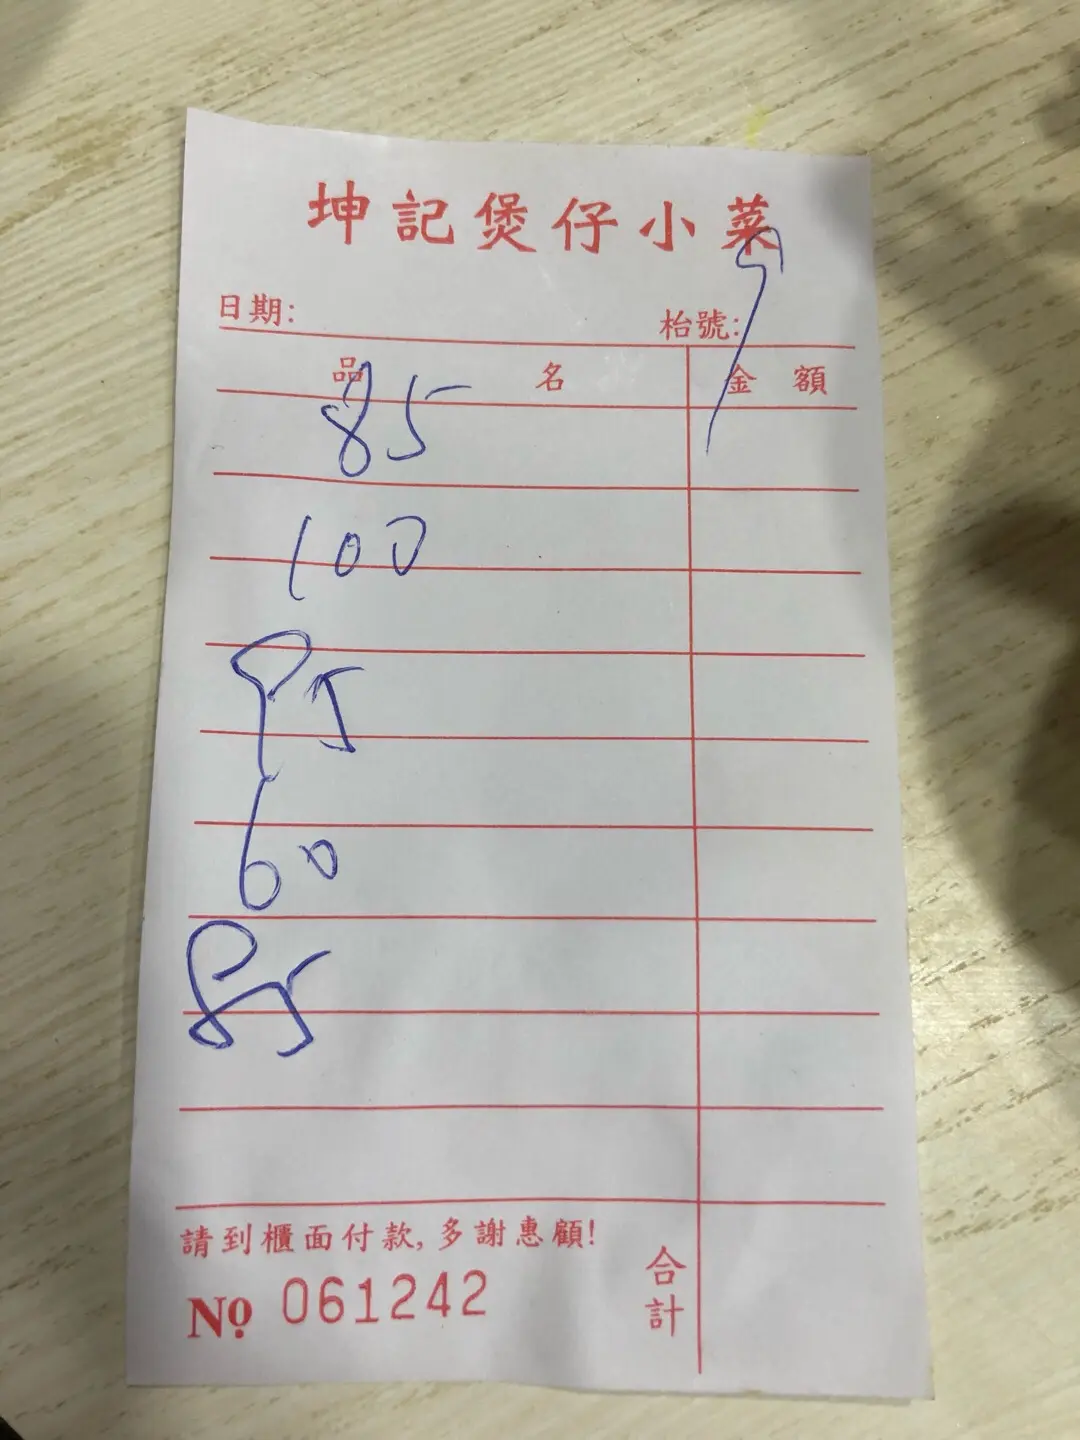 坤記煲仔小菜
日期: 枱號: 9
品名 金額
85
100
95
60
85
請到櫃面付款,多謝惠顧!
合計
No 061242